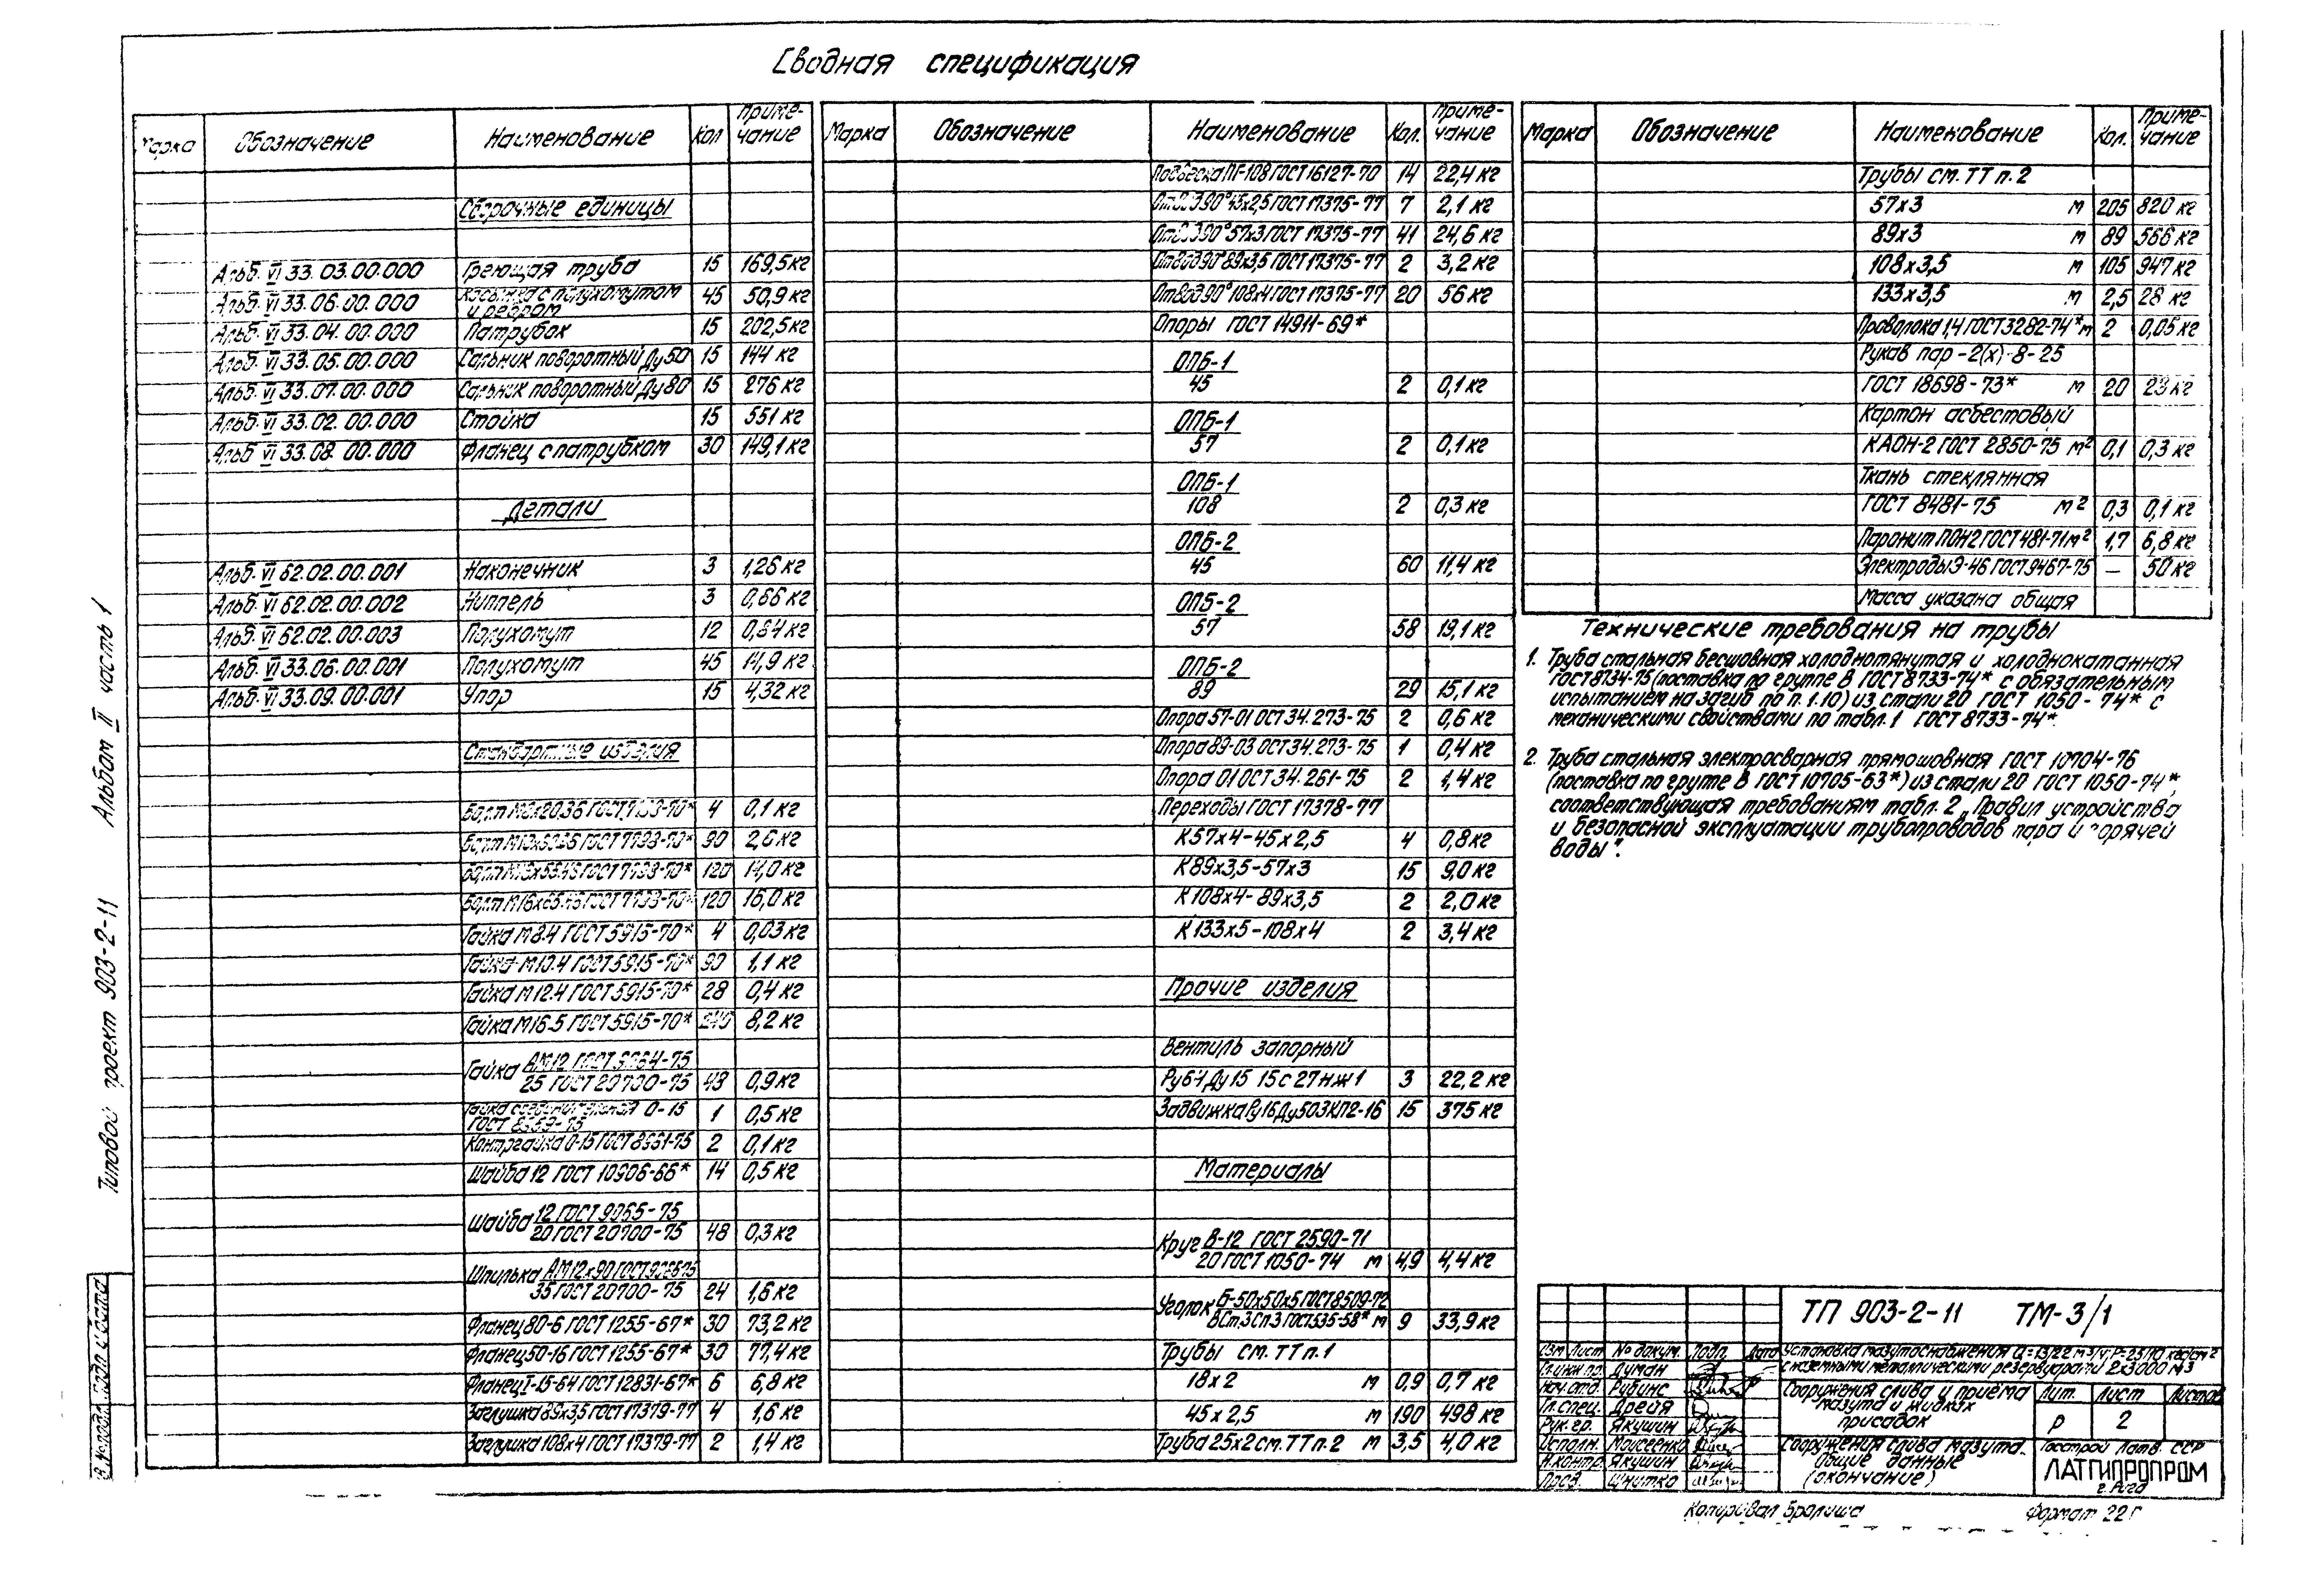 Сводная спецификация
Марка Обозначение Наименование Кол Приме-чание
Сборочные единицы
Альб. VI 33.03.00.000 Греющая труба 15 169,5кг
Альб. VI 33.06.00.000 Косынка с полухомутом и ребром 45 50,9 кг
Альб. VI 33.04.00.000 Патрубок 15 202,5кг
Альб. VI 33.05.00.000 Сальник поворотный Ду50 15 144 кг
Альб. VI 33.07.00.000 Сальник поворотный Ду80 15 276 кг
Альб. VI 33.02.00.000 Стойка 15 551 кг
Альб VI 33.08.00.000 Фланец с патрубком 30 149,1кг
Детали
Альб. VI 62.02.00.001 Наконечник 3 1,26 кг
Альб. VI 62.02.00.002 Ниппель 3 0,66 кг
Альб. VI 62.02.00.003 Полухомут 12 0,84кг
Альб. VI 33.06.00.001 Полухомут 45 14,9 кг
Альб. VI 33.09.00.001 Упор 15 4,32 кг
Стандартные изделия
Болт М8х20.36 ГОСТ 7798-70* 4 0,1 кг
Болт ГОСТ 7798-70* 90 2,6 кг
Болт ГОСТ 7798-70* 120 14,0кг
Болт М16х65.46 ГОСТ 7798-70* 120 16,0кг
Гайка М8.4 ГОСТ 5915-70* 4 0,03 кг
Гайка М10.4 ГОСТ 5915-70* 90 1,1 кг
Гайка М12.4 ГОСТ 5915-70* 28 0,4 кг
Гайка М16.5 ГОСТ 5915-70* 240 8,2 кг
Гайка АМ12 ГОСТ 9064-75
25 ГОСТ 20700-75 48 0,9 кг
Гайка соединительная 0-15
ГОСТ 8959-75 1 0,5 кг
Контргайка 0-15 ГОСТ 8961-75 2 0,1 кг
Шайба 12 ГОСТ 10906-66* 14 0,5 кг
Шайба 12 ГОСТ 9065-75
20 ГОСТ 20700-75 48 0,3 кг
Шпилька АМ12х90 ГОСТ
35 ГОСТ 20700-75 24 1,6 кг
Фланец 80-6 ГОСТ 1255-67* 30 73,2 кг
Фланец 50-16 ГОСТ 1255-67* 30 77,4 кг
Фланец I-15-64 ГОСТ 12831-67* 6 6,8 кг
Заглушка 89х3,5 ГОСТ 17379-77 4 1,6 кг
Заглушка 108х4 ГОСТ 17379-77 2 1,4 кг
Марка Обозначение Наименование Кол. Приме-чание
Подвеска ПГ-108 ГОСТ 16127-70 14 22,4 кг
Отвод 90° 45х2,5 ГОСТ 17375-77 7 2,1 кг
Отвод 90° 57х3 ГОСТ 17375-77 41 24,6 кг
Отвод 90° 89х3,5 ГОСТ 17375-77 2 3,2 кг
Отвод 90° 108х4 ГОСТ 17375-77 20 56 кг
Опоры ГОСТ 14911-69*
ОПБ-1
45 2 0,1 кг
ОПБ-1
57 2 0,1 кг
ОПБ-1
108 2 0,3 кг
ОПБ-2
45 60 11,4 кг
ОПБ-2
57 58 19,1 кг
ОПБ-2
89 29 15,1 кг
Опора 57-01 ОСТ 34.273-75 2 0,6 кг
Опора 89-03 ОСТ 34.273-75 1 0,4 кг
Опора 01 ОСТ 34.261-75 2 1,4 кг
Переходы ГОСТ 17378-77
К57х4-45х2,5 4 0,8кг
К89х3,5-57х3 15 9,0 кг
К108х4-89х3,5 2 2,0 кг
К133х5-108х4 2 3,4 кг
Прочие изделия
Вентиль запорный
Ру64 Ду15 15с27нж1 3 22,2 кг
Задвижка Ру16 Ду50 ЗКЛ2-16 15 375 кг
Материалы
Круг В-12 ГОСТ 2590-71
20 ГОСТ 1050-74 м 4,9 4,4 кг
Уголок Б-50х50х5 ГОСТ 8509-72
ВСт.3Сп3 ГОСТ 535-58* м 9 33,9 кг
Трубы см. ТТ п.1
18х2 м 0,9 0,7 кг
45х2,5 м 190 498 кг
Труба 25х2 см. ТТ п.2 м 3,5 4,0 кг
Марка Обозначение Наименование Кол. Приме-чание
Трубы см. ТТ п.2
57х3 м 205 820 кг
89х3 м 89 566 кг
108х3,5 м 105 947 кг
133х3,5 м 2,5 28 кг
Проволока 1,4 ГОСТ 3282-74* м 2 0,05 кг
Рукав пар-2(х)-8-25
ГОСТ 18698-73* м 20 23 кг
Картон асбестовый
КАОН-2 ГОСТ 2850-75 м2 0,1 0,3 кг
Ткань стеклянная
ГОСТ 8481-75 м2 0,3 0,1 кг
Паронит ПОН2 ГОСТ 481-71 м2 1,7 6,8 кг
Электроды Э-46 ГОСТ 9467-75 — 50 кг
Масса указана общая
Технические требования на трубы
1. Труба стальная бесшовная холоднотянутая и холоднокатанная
ГОСТ 8734-75 (поставка по группе В ГОСТ 8733-74* с обязательным
испытанием на загиб по п. 1.10) из стали 20 ГОСТ 1050-74* с
механическими свойствами по табл. 1 ГОСТ 8733-74*.
2. Труба стальная электросварная прямошовная ГОСТ 10704-76
(поставка по группе В ГОСТ 10705-63*) из стали 20 ГОСТ 1050-74*,
соответствующая требованиям табл. 2 „Правил устройства
и безопасной эксплуатации трубопроводов пара и горячей
воды".
ТП 903-2-11 ТМ-3/1
Изм Лист № докум. Подп. Дата
Гл.инж.пр. Думан
Нач.отд. Рубинс
Гл.спец. Дрейя
Рук.гр. Якушин
Исполн. Моисеенко
Н.контр. Якушин
Пров. Шнитко
Установка мазутоснабжения Q=13/22 м3/ч; Р=25/10 кгс/см2
с наземными металлическими резервуарами 2х3000 м3
Сооружения слива и приёма
мазута и жидких
присадок
Лит. Лист Листов
Р 2
Сооружения слива мазута.
Общие данные
(окончание)
Госстрой Латв. ССР
ЛАТГИПРОПРОМ
г. Рига
Копировал Бралиша Формат 22Г
Типовой проект 903-2-11 Альбом II часть 1